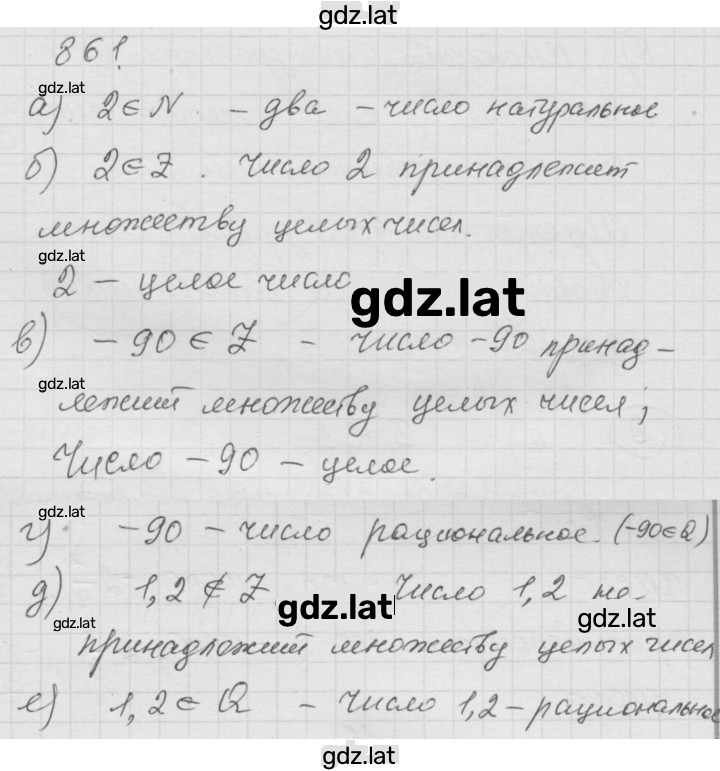 gdz.lat
861
gdz.lat
а) 2 ∈ N. – два – число натуральное
б) 2 ∈ Z. Число 2 принадлежит
множеству целых чисел.
gdz.lat
2 – целое число
gdz.lat
в) – 90 ∈ Z – число -90 принад-
gdz.lat
лежит множеству целых чисел;
Число – 90 – целое.
gdz.lat
г) -90 – число рациональное. (-90 ∈ Q)
д) 1,2 ∉ Z Число 1,2 не
gdz.lat
gdz.lat
gdz.lat
принадложит множеству целых чисел
е) 1,2 ∈ Q – число 1,2 – рациональное
gdz.lat